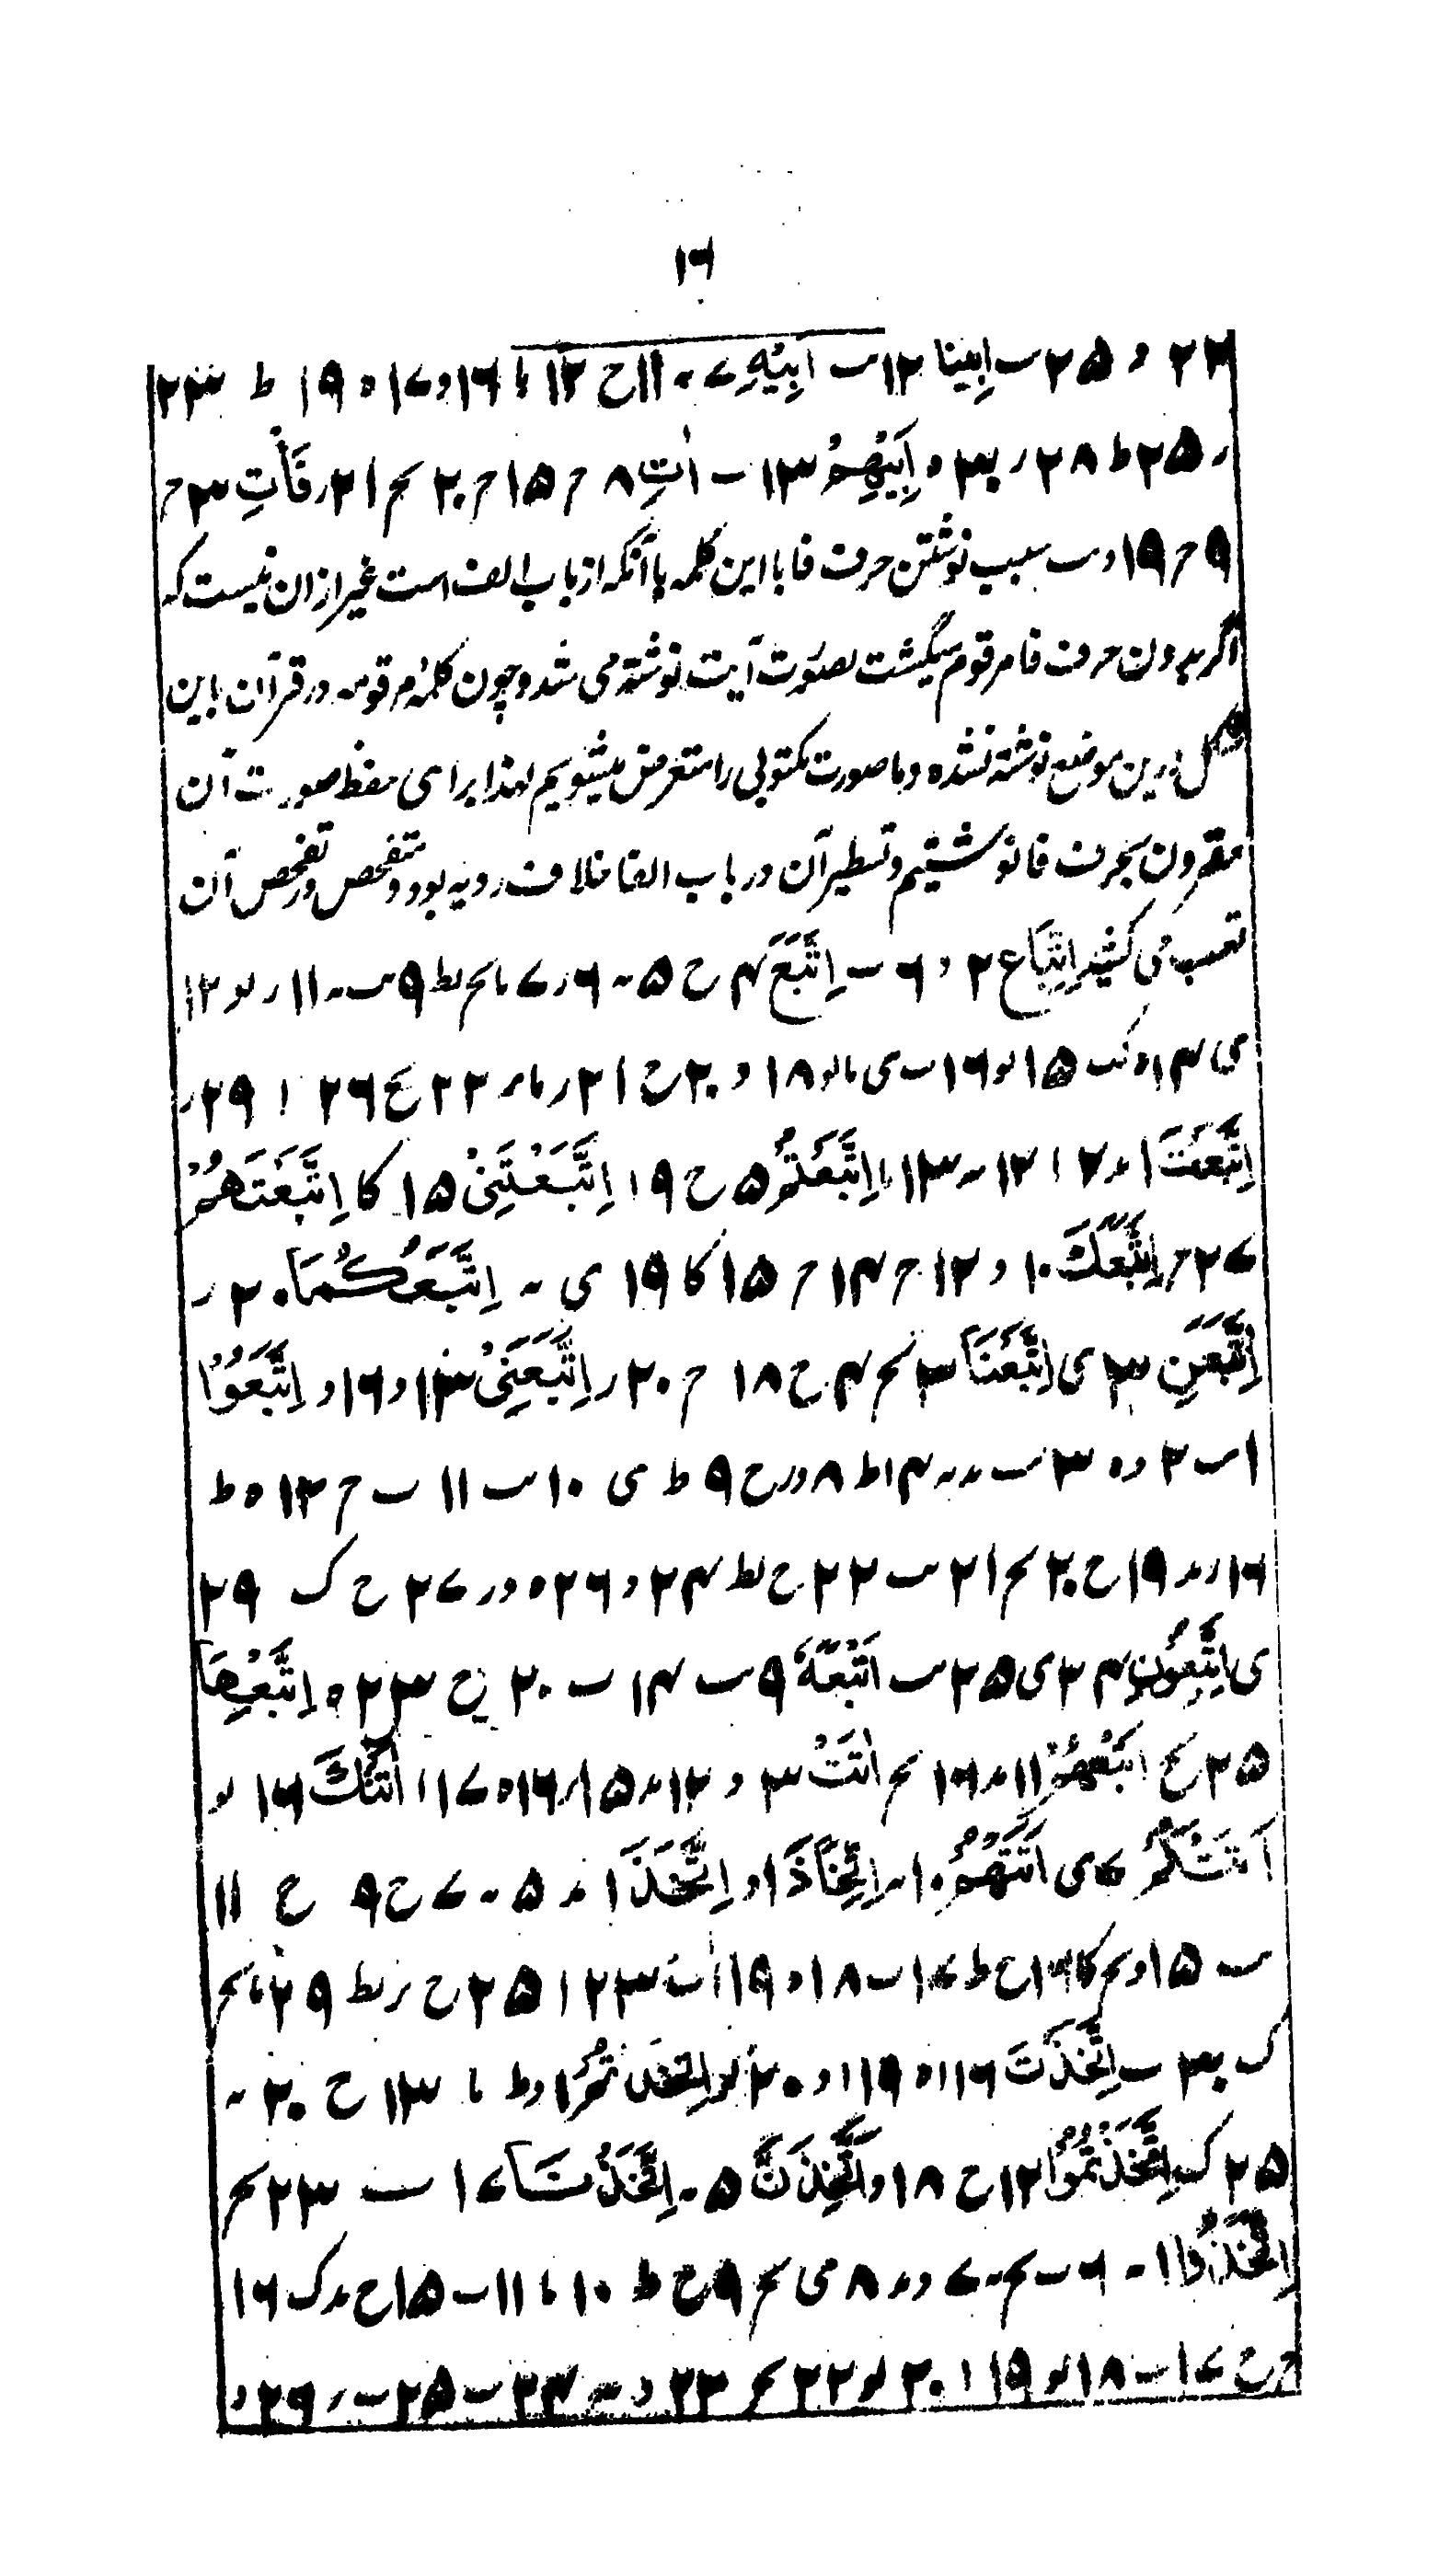 ۱۶
۲۲ و ۲۵ ب اَبِینا ۱۲ ب اَبِیْهِ ۷ ۔ ۱۱ ح ۱۲ ما ۱۶ و ۱۷ ه ۱۹ ا ط ۲۳
ر ۲۵ ط ۲۸ ر ۳۰ و اَبِیْهِمْ ۱۳ ب اٰتِ ۸ م ۱۵ م ۲۰ یح ۲۱ ر فَأْتِ ۳ م
۹ م ۱۹ و ب سبب نوشتن حرف فا با این کلمه با آنکه از باب الف است غیر ازان نیست که
اگر بدون حرف فا مرقوم میگشت بصورت آیت نوشته می شد و چون کلمهٔ مرقومه در قرآن باین
شکل درین موضع نوشته نشده و ما صورت مکتوبی را متعرض میشویم لهذا برای حفظ صورت آن
مقرون بحرف فا نوشتیم و تسطیر آن در باب الفا خلاف رویه بود و متفحص در تفحص آن
تعب می کشید اِتِّبَاع ۲ و ۶ ب اِتَّبَعَ ۴ ح ۵ ۔ ۶ ر ۷ ما یح یط ۹ ب ۔ ۱۱ ر یو ۱۲
ی ۱۴ ه ک ۱۵ یو ۱۶ ب ی ما یو ۱۸ و ۲۰ ح ۲۱ ر ما مر ۲۲ یح ۲۶ ا ۲۹ ر
اِتَّبَعْتَ ۱ مد ۷ ا ۱۲ ۔ ۱۳ ما اِتَّبَعْتُمْ ۵ ح ۱۹ ا اِتَّبَعْتَنِیْ ۱۵ کا اِتَّبَعَتْهُمْ
۲۷ م اِتَّبَعَكَ ۱۰ و ۱۲ م ۱۴ م ۱۵ کا ۱۹ ی ۔ اِتَّبَعَكُمَا ۲۰ ر
اِتَّبَعَنِ ۳ ی اِتَّبَعَنَا ۳ یح ۴ ح ۱۸ م ۲۰ ر اِتَّبَعَنِیْ ۱۳ و ۱۶ و اِتَّبَعُوْا
۱ ب ۲ و ه ۳ ب مد ۔ ۴ ا ط ۸ در ح ۹ ط ی ۱۰ ب ۱۱ ب م ۱۲ ه ط
۱۶ ر مد ۱۹ ح ۲۰ یح ۲۱ ب ۲۲ ح یط ۲۴ و ۲۶ ه در ۲۷ ح ک ۲۹
ی اِتَّبِعُوْنِ ۲۴ ی ۲۵ ب اِتَّبَعَهٗ ۹ ب ۱۴ ب ۲۰ ح ۲۳ ه اِتَّبِعْهَا
۲۵ یح ۱۱ مد ۱۶ یح اٰتَتْ ۳ و ۱۲ مد ۱۵ ر ۱۶ ه ۱۷ ا اَتَتْكَ ۱۶ یو
اَتَتْكُمْ ۷ ی اَتَتْهُمْ ۱۰ ۔ اِتِّخَاذ ۱ و اِتَّخَذَ ۱ مد ۵ ۔ ۷ ح ۹ ح ۱۱
ب ۱۵ و یح کا ۱۶ ح ط ۱۷ ب ۱۸ و ۱۹ ا ب ۲۳ ا ۲۵ ح ر یط ۲۹ ما یح
ک ۳۰ ب اِتَّخَذْتَ ۱۶ ا ه ۱۹ ا و ۲۰ یو اِتَّخَذْتُمْ ۱ و ط ما ۱۳ ح ۲۰ ۔
۲۵ ک اِتَّخَذْتُمُوْا ۱۲ ح ۱۸ و اَتَّخِذَنَّ ۵ ۔ اِتَّخَذْنَا ۱۷ ب ۲۳ یح
اِتَّخَذُوْا ۱ ۔ ۶ ب یح ۔ ۷ و مد ۸ ی یح ۹ ح ط ۱۰ ما ۱۱ ب ۱۵ ح مد ک ۱۶
م ح ۱۷ ب ۱۸ یو ۱۹ ا ۲۰ یو ۲۲ یح ۲۳ و ۔ ۲۴ ب ۲۵ ب ر ۲۶ و